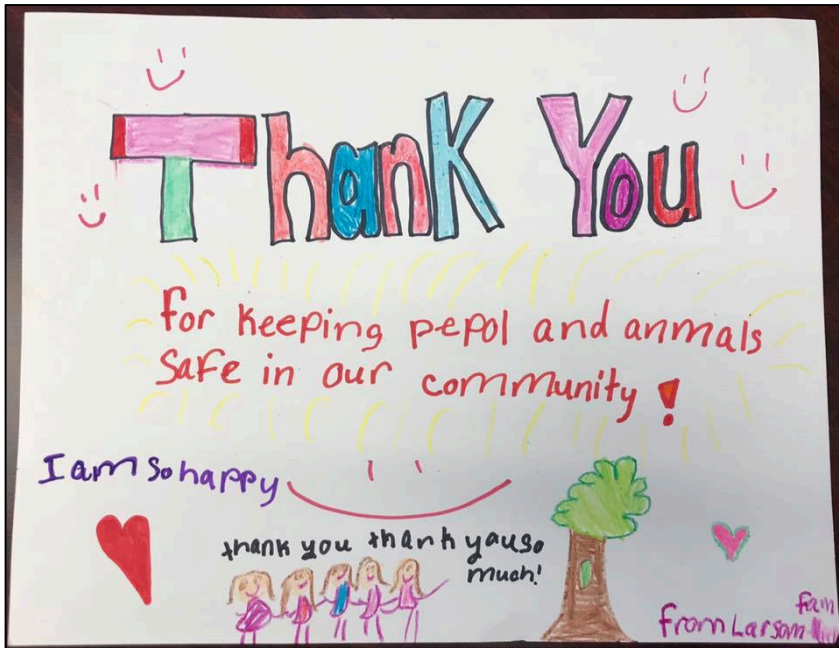 Thank You
for keeping pepol and anmals
safe in our community!
I am so happy
thank you thank yauso
much!
fam
from Larson